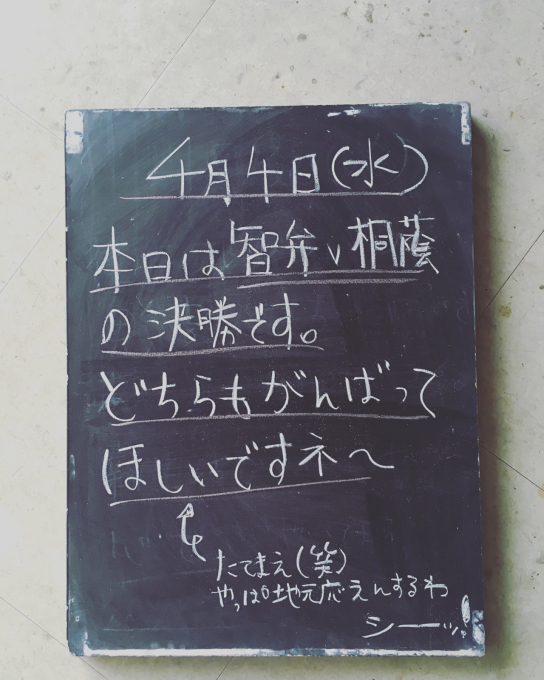 4月4日(水)
本日は智弁v桐蔭
の決勝です。
どちらもがんばって
ほしいですネ〜
たてまえ(笑)
やっぱ地元応えんするわ
シーーッ!